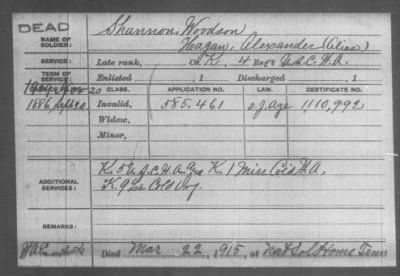 DEAD
NAME OF SOLDIER: Shannon, Woodson
Hagan, Alexander (Alias)
SERVICE: Late rank, K, 4 Reg't U.S.C.H.A.
TERM OF SERVICE: Enlisted , 1 Discharged , 1
CLASS. APPLICATION NO. LAW. CERTIFICATE NO.
1886 Sept 20 Invalid, 585.461 o.j.age 1,110,992
Widow,
Minor,
ADDITIONAL SERVICES: K. 5 U.S.C.H.A. K. 1 Miss Col'd H.A.
K. 9 La. Cold
REMARKS:
Died Mar 22, 1915, at Nat Sol Home Tenn